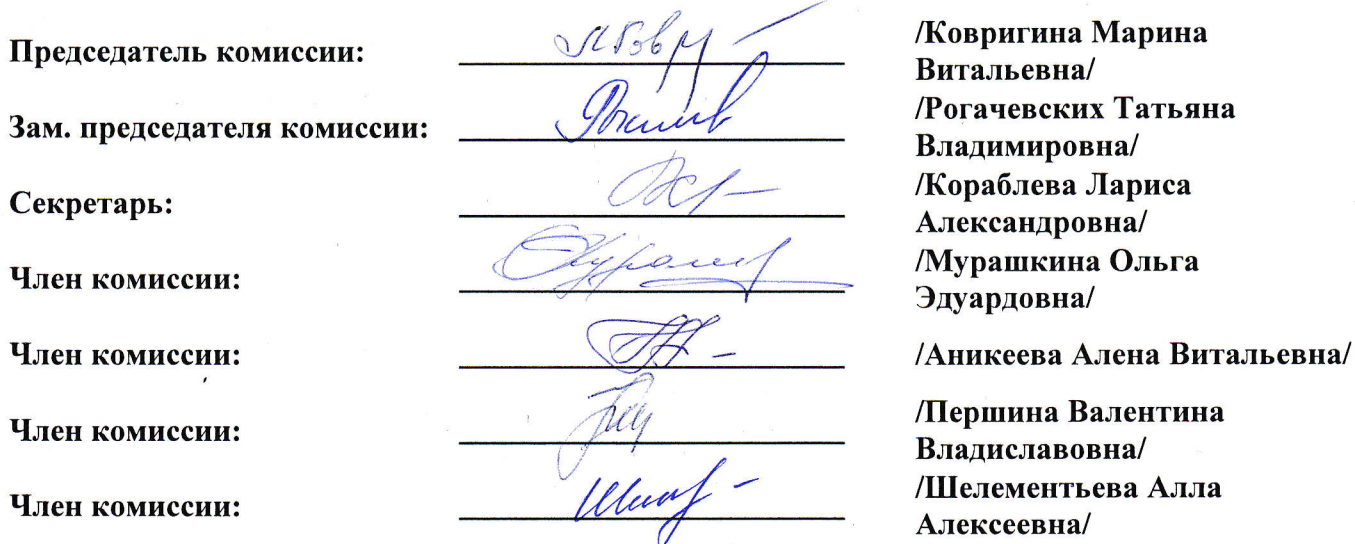 Председатель комиссии: /Ковригина Марина
Витальевна/
Зам. председателя комиссии: /Рогачевских Татьяна
Владимировна/
Секретарь: /Кораблева Лариса
Александровна/
Член комиссии: /Мурашкина Ольга
Эдуардовна/
Член комиссии: /Аникеева Алена Витальевна/
Член комиссии: /Першина Валентина
Владиславовна/
Член комиссии: /Шелементьева Алла
Алексеевна/